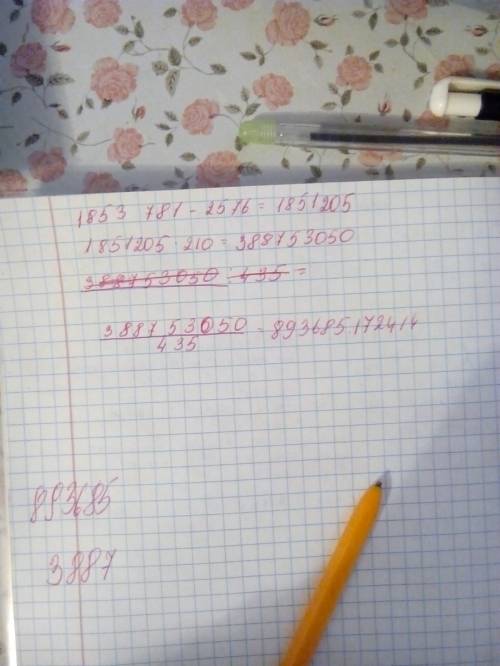 1853 781 - 2576 = 1851205
1851205 · 210 = 388753050
388753050 : 435 =
388753050
435
- 893685172414
893685
3887